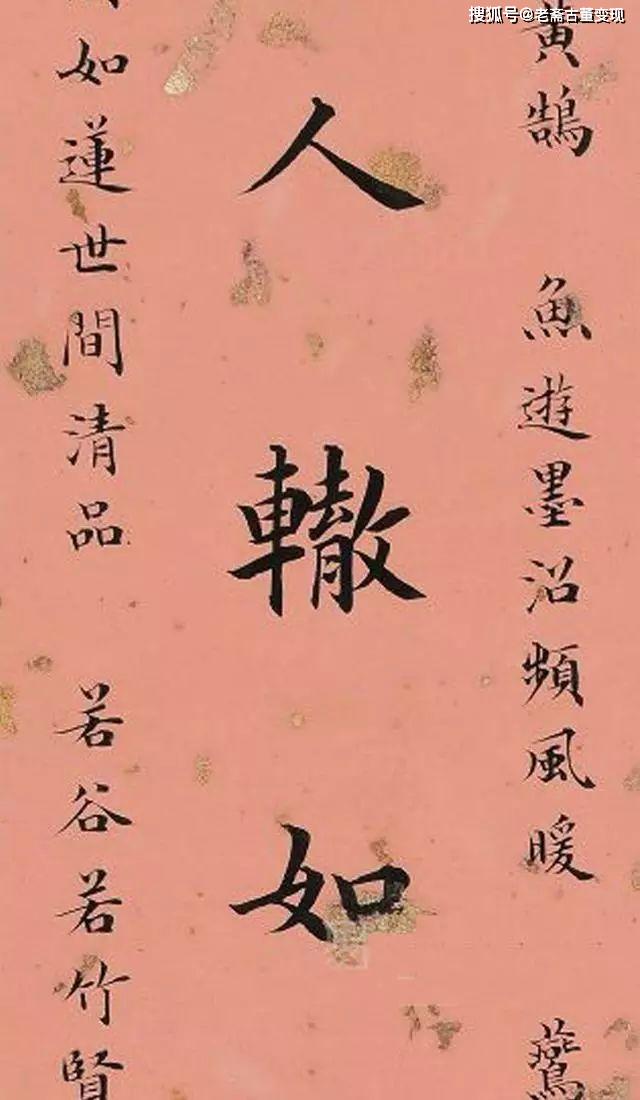 搜狐号@老斋古董变现
黃鵠 魚遊墨沼頻風暖 鷰
人轍如
如蓮世間清品 若谷若竹賢